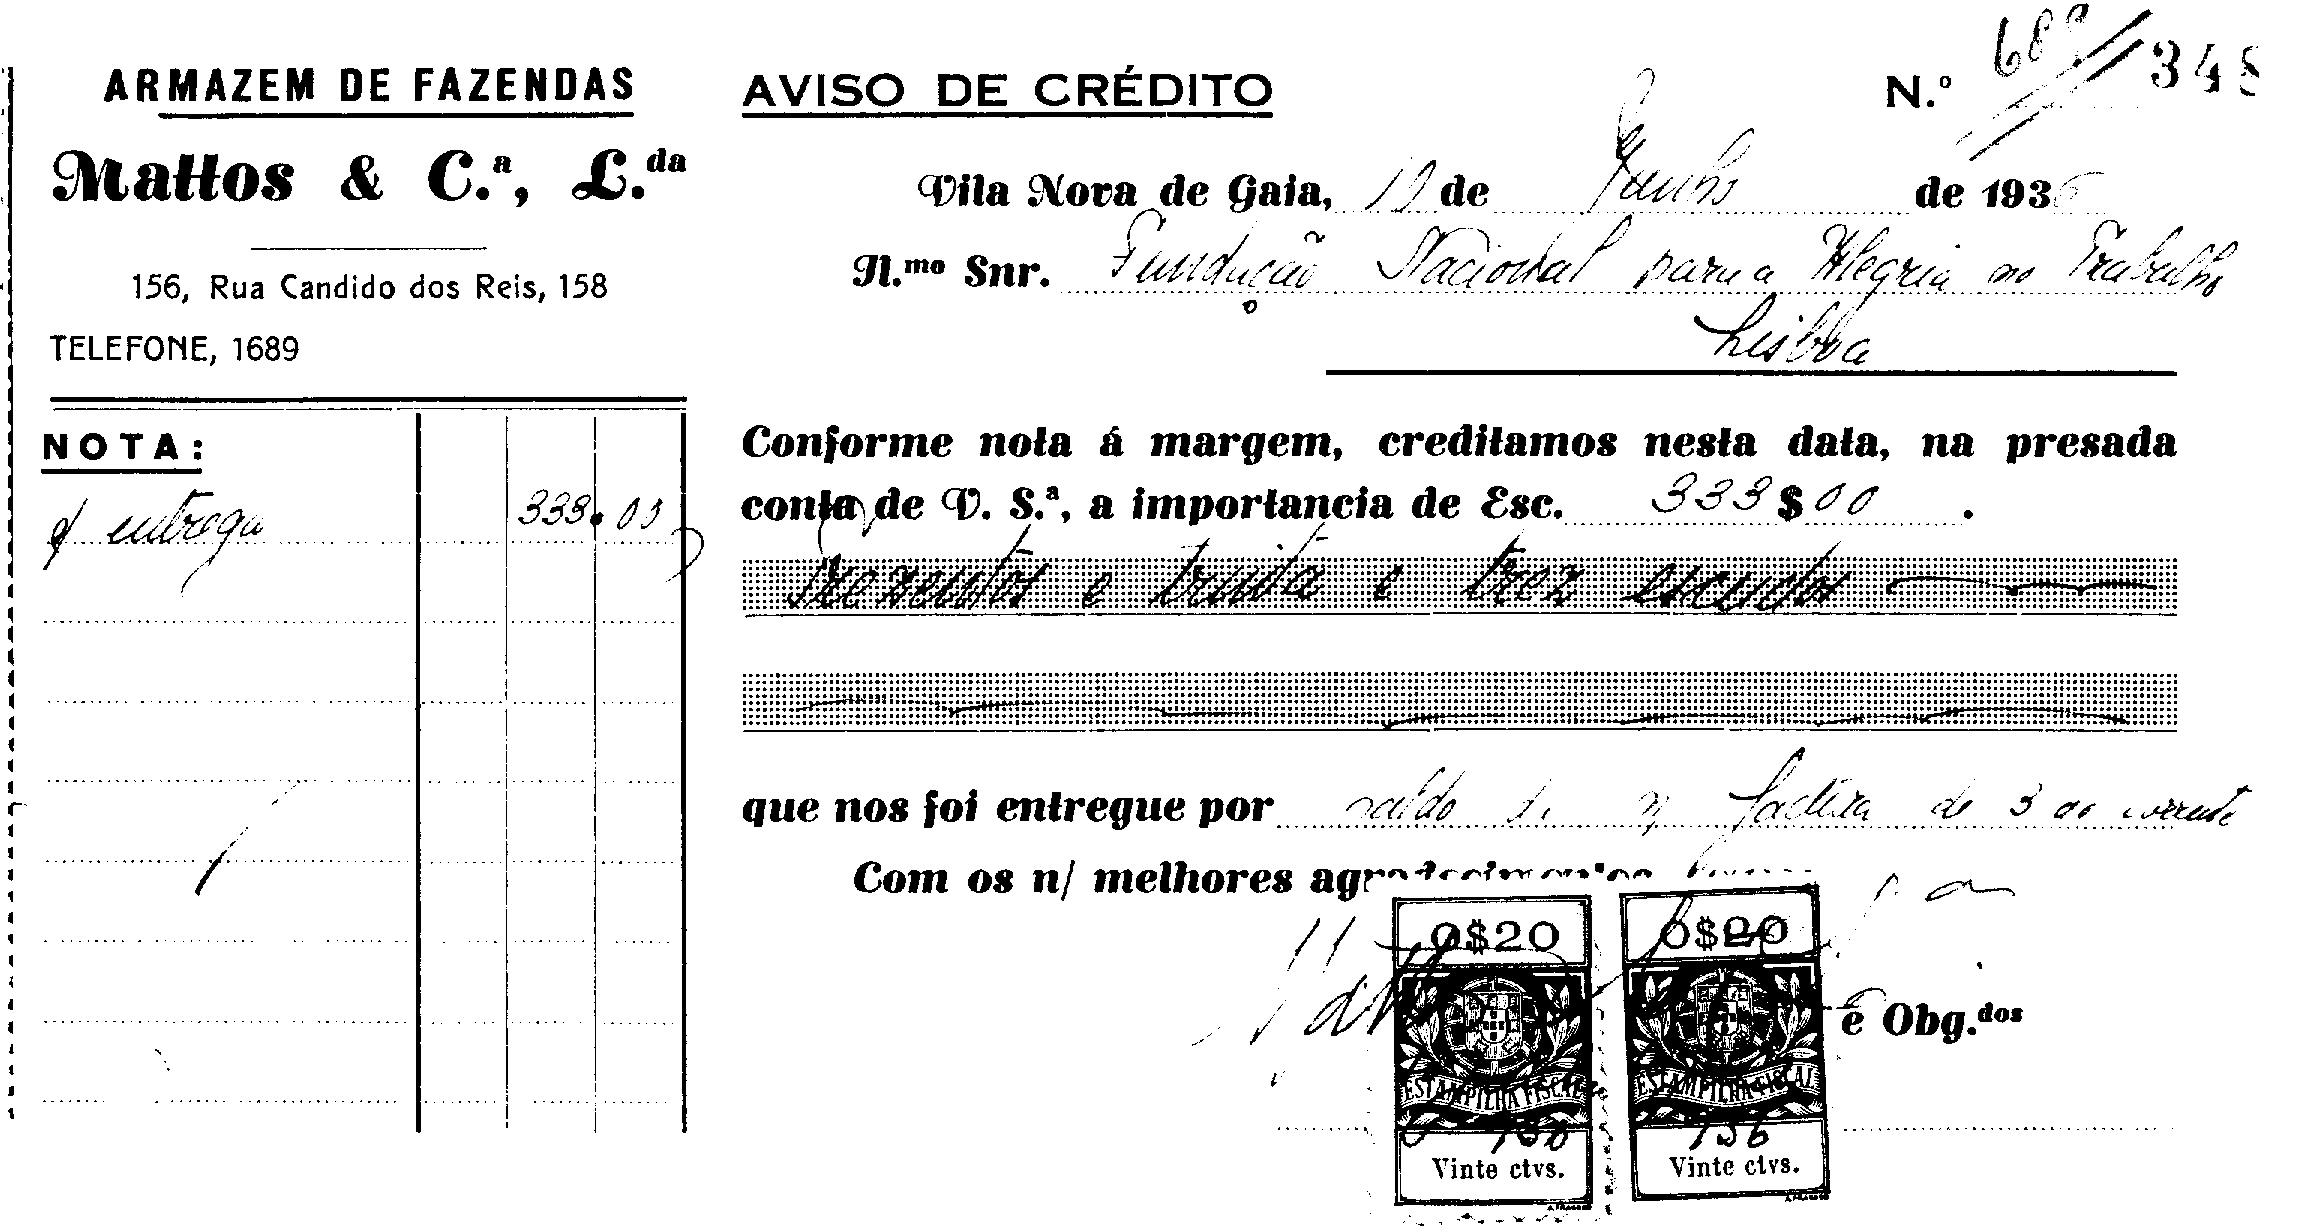 ARMAZEM DE FAZENDAS
Mattos & C.ª, L.da
156, Rua Candido dos Reis, 158
TELEFONE, 1689
NOTA:
entrega 333.00
AVISO DE CRÉDITO
N.º 348
Vila Nova de Gaia, 19 de Junho de 1936
Il.mo Snr. Fundação Nacional para a Alegria no Trabalho
Lisboa
Conforme nota á margem, creditamos nesta data, na presada
conta de V. S.ª, a importancia de Esc. 333$00.
Trezentos e trinta e trez escudos
que nos foi entregue por saldo de n/ factura de 3 do corrente
Com os n/ melhores agradecimentos
e Obg.dos
0$20
ESTAMPILHA FISCAL
Vinte ctvs.
0$20
ESTAMPILHA FISCAL
936
Vinte ctvs.